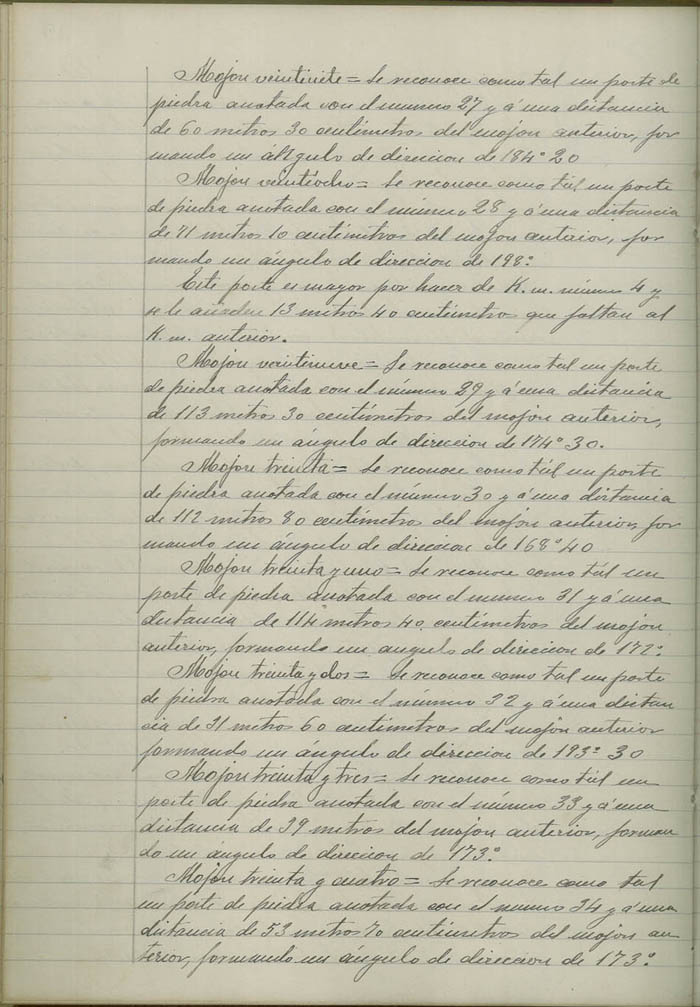 Mojon veintisiete = Se reconoce como tal un poste de
piedra anotada con el número 27 y á una distancia
de 60 metros 30 centímetros del mojon anterior, for
mando un ángulo de direccion de 184° 20
Mojon veintiocho = Se reconoce como tal un poste
de piedra anotada con el número 28 y á una distancia
de 71 metros 10 centímetros del mojon anterior, for
mando un ángulo de direccion de 198°
Este poste es mayor por hacer de K. m. número 4 y
se le añaden 13 metros 40 centímetros que faltan al
K. m. anterior.
Mojon veintinueve = Se reconoce como tal un poste
de piedra anotada con el número 29 y á una distancia
de 113 metros 30 centímetros del mojon anterior,
formando un ángulo de direccion de 174° 30.
Mojon treinta = Se reconoce como tál un poste
de piedra anotada con el número 30 y á una distancia
de 112 metros 80 centímetros del mojon anterior, for
mando un ángulo de direccion de 168° 40
Mojon treinta y uno = Se reconoce como tál un
poste de piedra anotada con el numero 31 y á una
distancia de 114 metros 40 centímetros del mojon
anterior, formando un angulo de direccion de 172°
Mojon treinta y dos = Se reconoce como tal un poste
de piedra anotada con el número 32 y á una distan
cia de 31 metros 60 centímetros del mojon anterior
formando un ángulo de direccion de 193° 30
Mojon treinta y tres = Se reconoce como tál un
poste de piedra anotada con el número 33 y á una
distancia de 39 metros del mojon anterior, forman
do un ángulo de direccion de 173°
Mojon treinta y cuatro = Se reconoce como tal
un poste de piedra anotada con el numero 34 y á una
distancia de 53 metros 70 centímetros del mojon an
terior, formando un ángulo de direccion de 173°